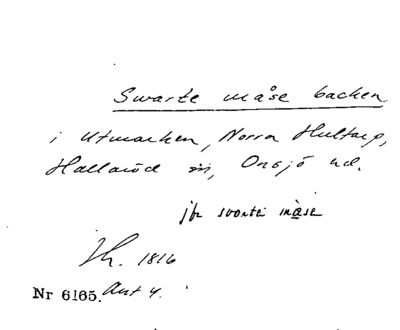 Swarte måse backen
i Utmarken, Norra Hultarp,
Hallaröd sn, Onsjö hd.
jfr svarte måse
Th. 1816
Nr 6165. Akt 4.